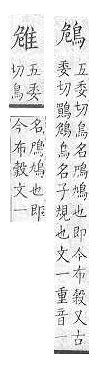 五委切鳥名鳲鳩也今布穀又古
委切鶗鳥名子規也文一重音一
五委
切鳥
名鳲鳩也即
今布穀文一